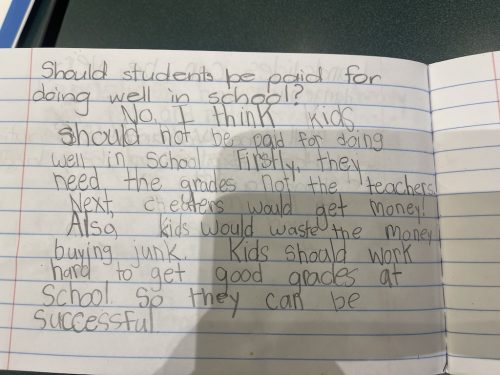 Should students be paid for
doing well in school?
No. I think kids
should not be paid for doing
well in school. Firstly, they
need the grades not the teachers!
Next, cheaters would get money!
Also, kids would waste the money
buying junk. Kids should work
hard to get good grades at
school. So they can be
successful.